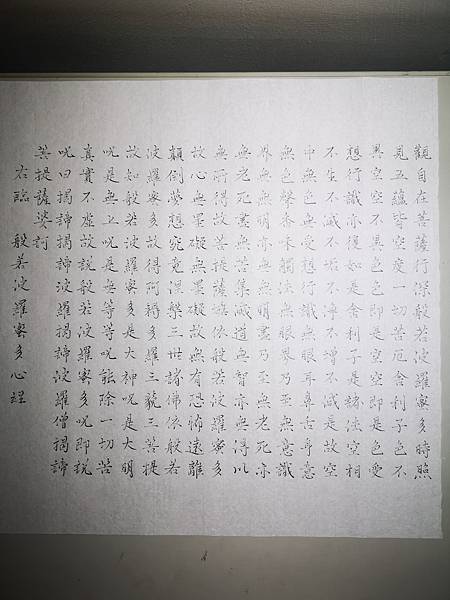 觀自在菩薩行深般若波羅蜜多時照
見五蘊皆空度一切苦厄舍利子色不
異空空不異色色即是空空即是色受
想行識亦復如是舍利子是諸法空相
不生不滅不垢不淨不增不減是故空
中無色無受想行識無眼耳鼻舌身意
無色聲香味觸法無眼界乃至無意識
界無無明亦無無明盡乃至無老死亦
無老死盡無苦集滅道無智亦無得以
無所得故菩提薩埵依般若波羅蜜多
故心無罣礙無罣礙故無有恐怖遠離
顛倒夢想究竟涅槃三世諸佛依般若
波羅蜜多故得阿耨多羅三藐三菩提
故知般若波羅蜜多是大神咒是大明
咒是無上咒是無等等咒能除一切苦
真實不虛故說般若波羅蜜多咒即說
咒曰揭諦揭諦波羅揭諦波羅僧揭諦
菩提薩婆訶
右臨 般若波羅蜜多心經